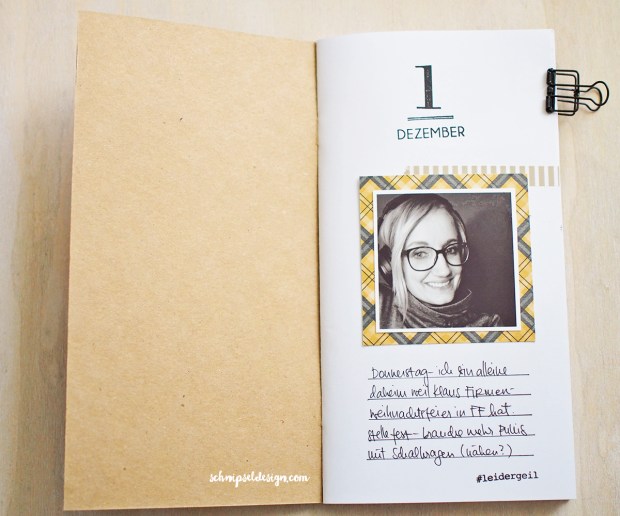 1
DEZEMBER
Donnerstag - ich bin alleine
daheim weil Klaus Firmen-
weihnachtsfeier in FF hat.
stelle fest - brauche mehr Pullis
mit Schalkragen (nähen?)
#leidergeil
schnipseldesign.com